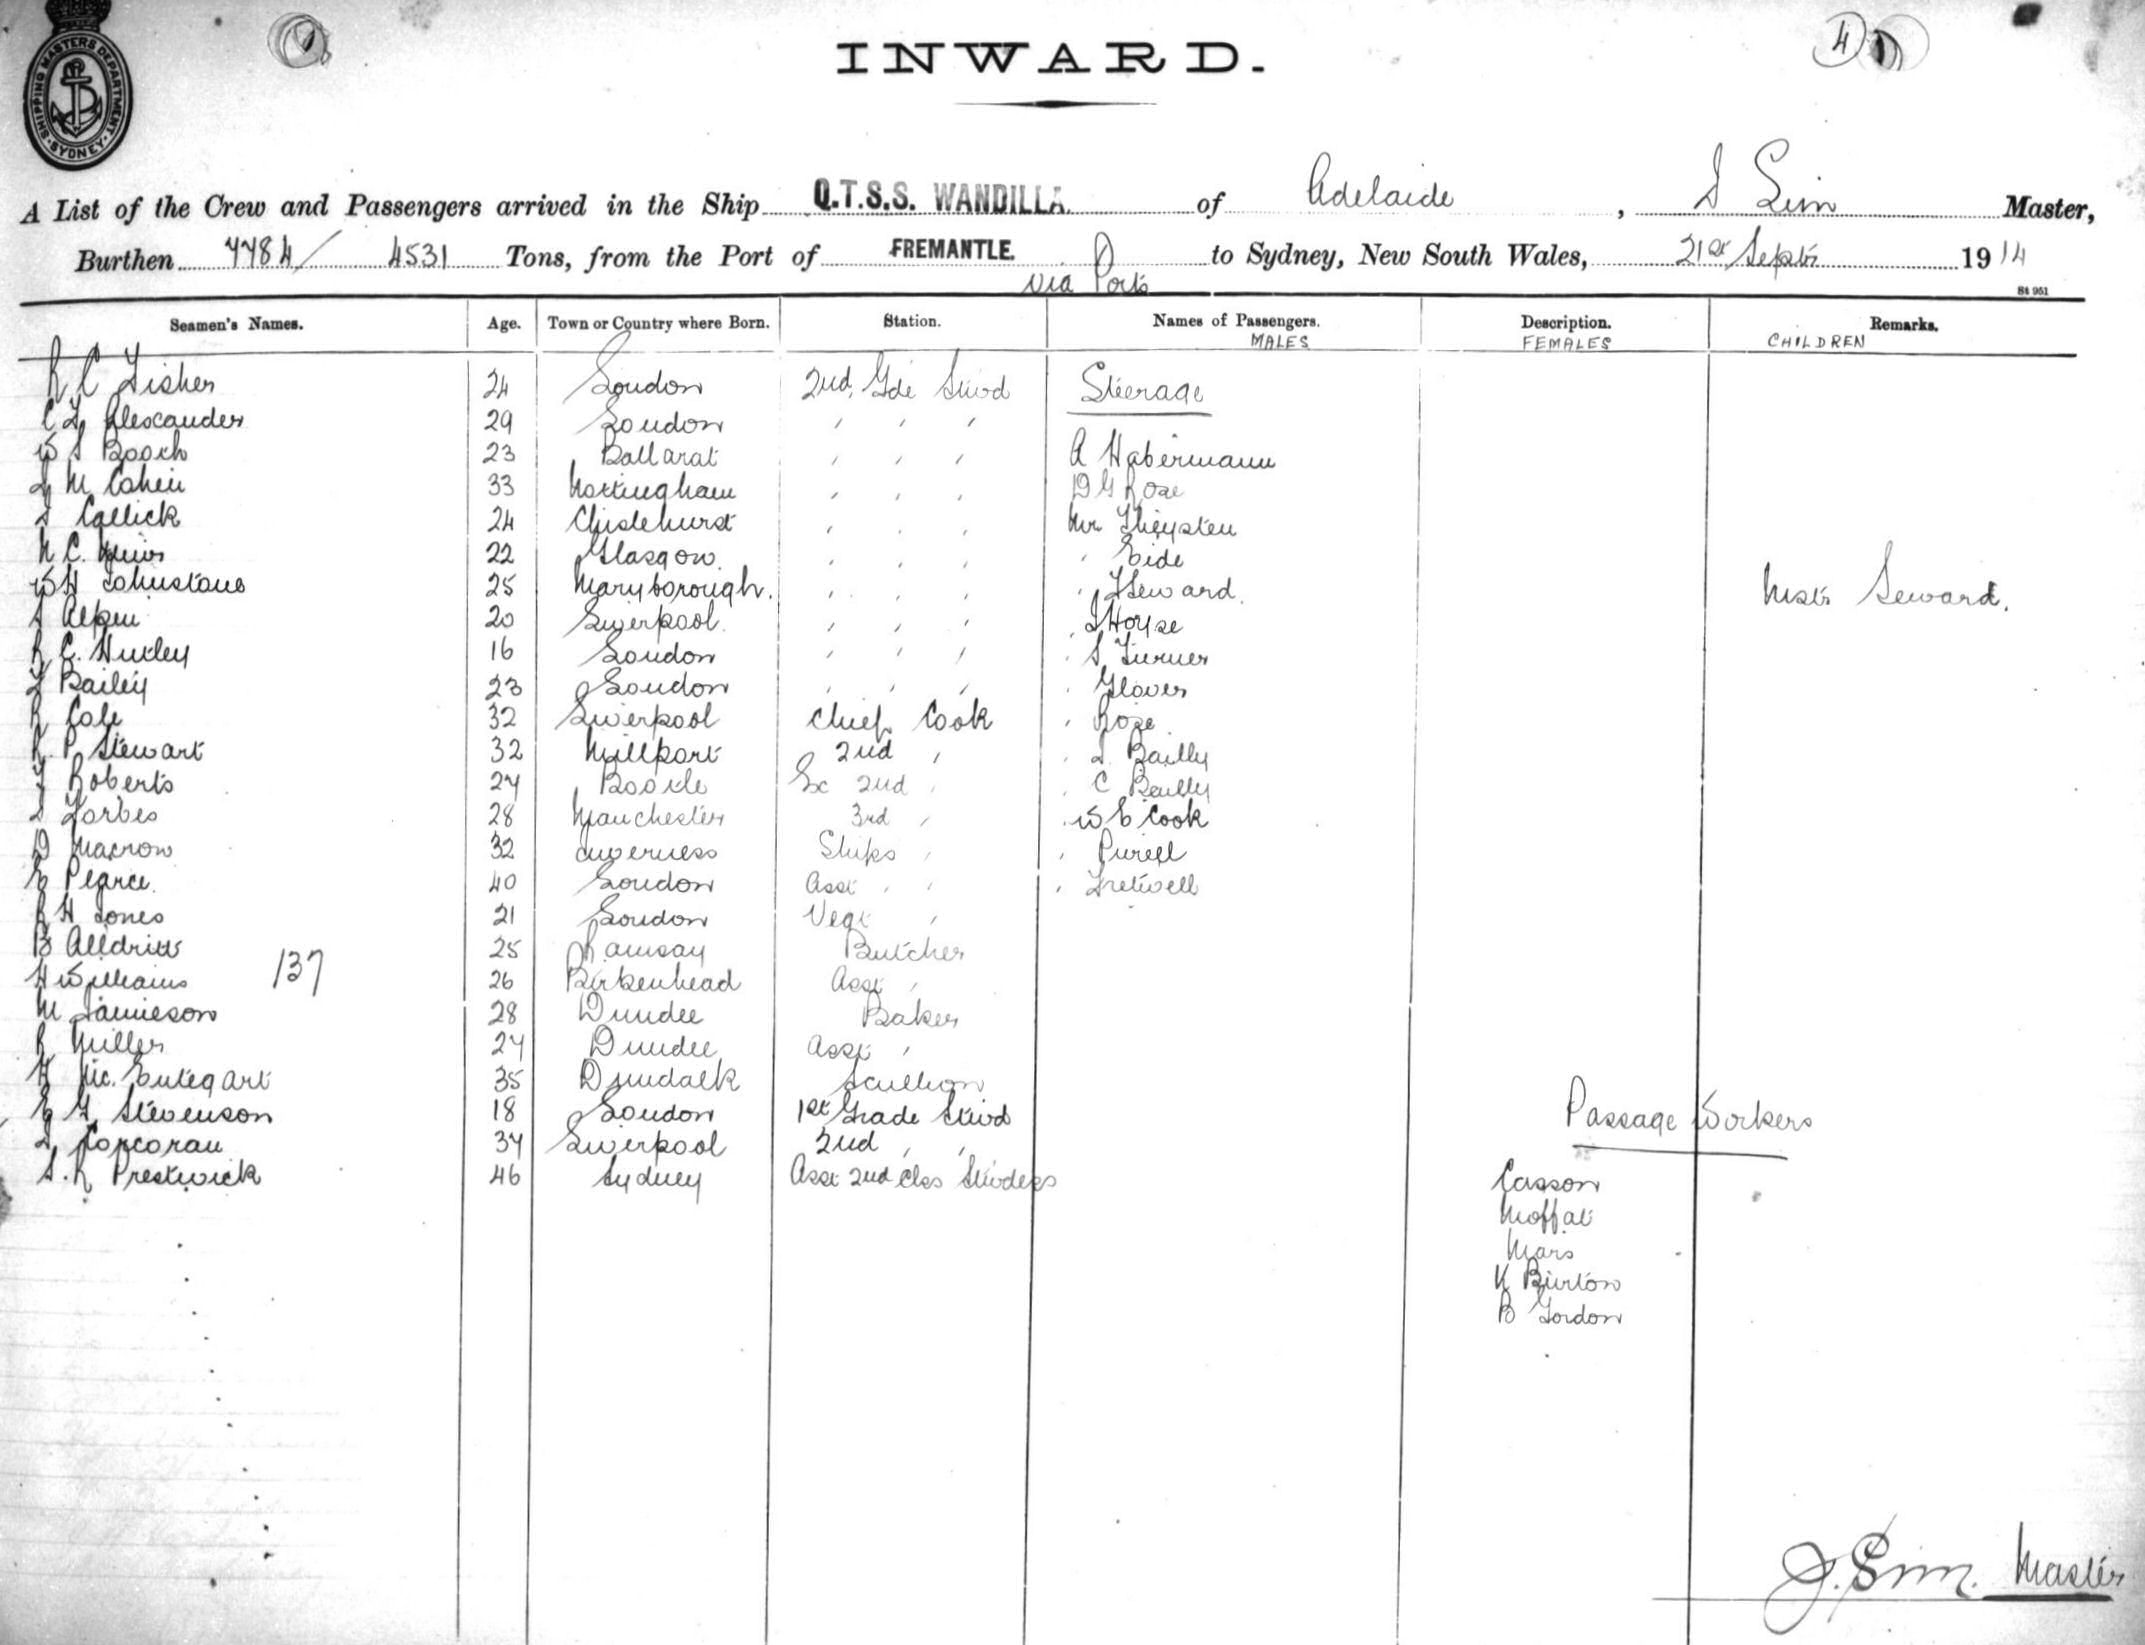 SHIPPING MASTERS DEPARTMENT
SYDNEY
INWARD.
4
A List of the Crew and Passengers arrived in the Ship Q.T.S.S. WANDILLA of Adelaide, J Sim Master,
Burthen 7784/4531 Tons, from the Port of FREMANTLE. to Sydney, New South Wales, 21st Septr 1914
via Ports
St 951
Seamen's Names. Age. Town or Country where Born. Station. Names of Passengers. Description. Remarks.
MALES FEMALES CHILDREN
R C Fisher 24 London 2nd Gde Stwd Steerage
C F Alexander 29 London , , ,
W S Booth 23 Ballarat , , , A Habermann
M Cohen 33 Nottingham , , , D G Rose
Callick 24 Chislehurst , , , Mr
N C 22 Glasgow , , , , Eide
W H Johnstone 25 Maryborough. , , , , Seward. Mstr Seward.
Alpen 20 Liverpool , , , , House
R C. Huxley 16 London , , , , S Turner
Bailey 23 London , , , , Glover
R Cole 32 Liverpool Chief Cook , Rose
R P Stewart 32 Millport 2nd , , Bailly
Roberts 27 Bootle Ex 2nd , , C Bailly
Forbes 28 Manchester 3rd , , W E Cook
D Macrow 32 Inverness Ships , , Purcell
E Pearce 40 London Asst , , , Fretwell
R H Jones 21 London Vegt ,
B Alldritt 25 Ramsay Butcher
H Williams 137 26 Birkenhead Asst ,
M Jamieson 28 Dundee Baker
R Miller 27 Dundee Asst ,
H Mc. Entegart 35 Dundalk Scullion
E G Stevenson 18 London 1st Grade Stwd Passage Workers
Corcoran 37 Liverpool 2nd , ,
S. R Prestwick 46 Sydney Asst 2nd Clss Stwdess Casson
Moffat
Mars
K Burton
B Gordon
J. Sim. Master